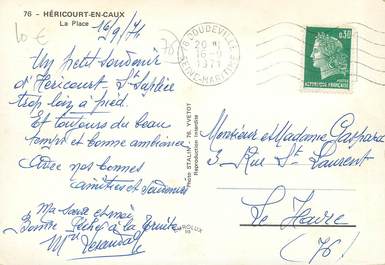 76 - HÉRICOURT-EN-CAUX
La Place
10 €
16/9/71
Un petit souvenir
d'Héricourt - St
trop loin à pied.
Et toujours du beau
temps et bonne ambiance
Avec nos bonnes
amitiés et
Ma soeur et moi
Bonne Pêche à la truite
Photo STALIN - 76. YVETOT
Reproduction interdite
76 DOUDEVILLE
16-9
1971
SEINE-MARITIME
0,30
REPUBLIQUE FRANÇAISE
Monsieur et Madame
3 Rue St Laurent
Le Havre
(76)